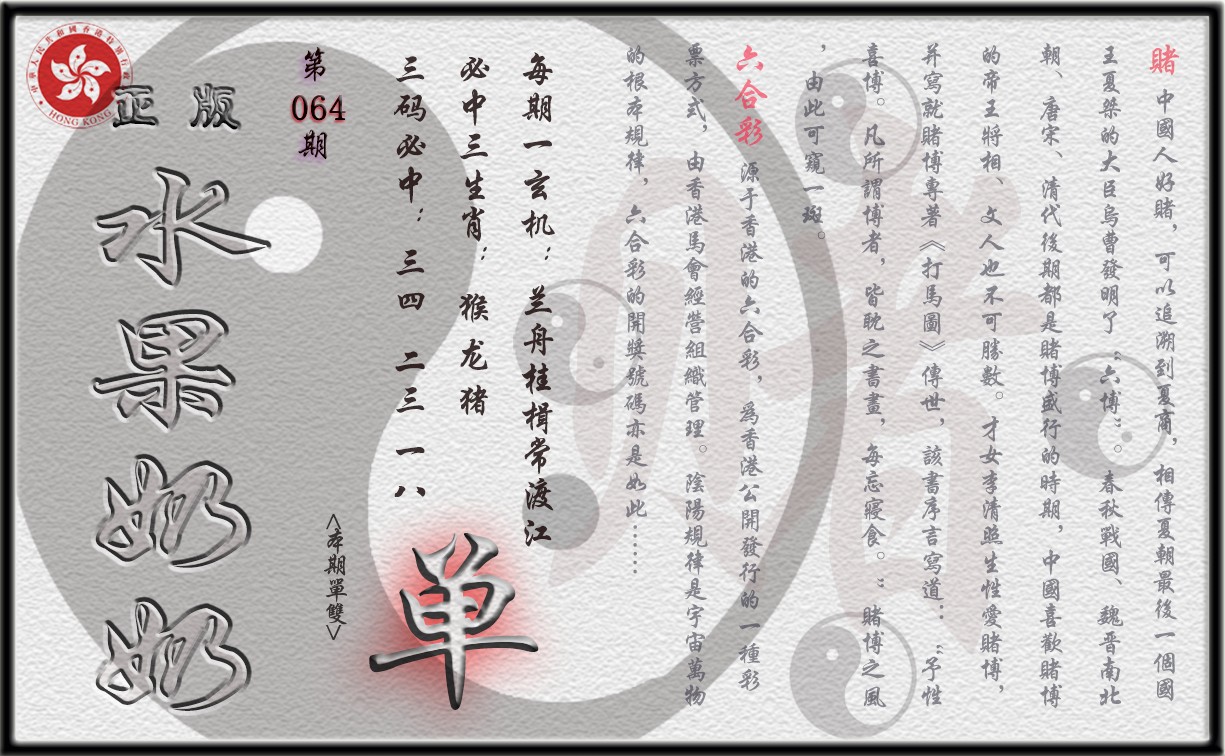 賭 中國人好賭，可以追溯到夏商，相傳夏朝最後一個國
王夏桀的大臣烏曹發明了“六博”。春秋戰國、魏晋南北
朝、唐宋、清代後期都是賭博盛行的時期，中國喜歡賭博
的帝王將相、文人也不可勝數。才女李清照生性愛賭博，
并寫就賭博專著《打馬圖》傳世，該書序言寫道：“予性
喜博。凡所謂博者，皆耽之書畫，每忘寢食。”賭博之風
，由此可窺一斑。
六合彩 源于香港的六合彩，爲香港公開發行的一種彩
票方式，由香港馬會經營組織管理。陰陽規律是宇宙萬物
的根本規律，六合彩的開獎號碼亦是如此……
每期一玄机：兰舟桂楫常渡江
必中三生肖：猴龙猪
三码必中：三四 二三 一八
单
<本期單雙>
第064期
正版
水果奶奶
中華人民共和國香港特別行政區
HONG KONG